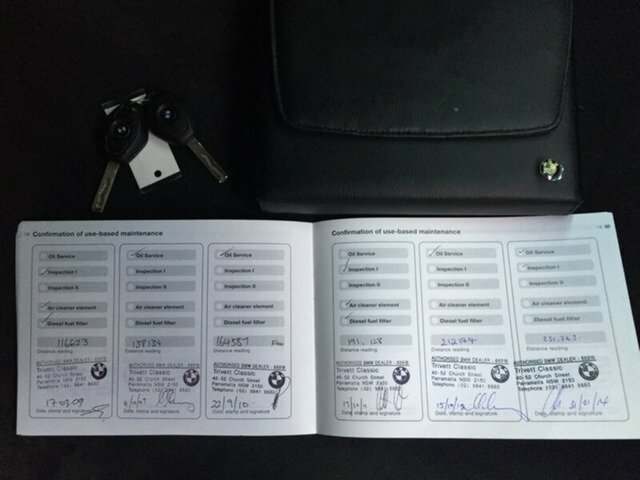 14 Confirmation of use-based maintenance
Oil Service
Inspection I
Inspection II
Air cleaner element
Diesel fuel filter
116623
Distance reading
AUTHORISED BMW DEALER - 88916
Trivett Classic
40-52 Church Street
Parramatta NSW 2150
Telephone (02) 9841 8880
17-03-09
Date, stamp and signature
Oil Service
Inspection I
Inspection II
Air cleaner element
Diesel fuel filter
138134
Distance reading
AUTHORISED BMW DEALER - 88916
Trivett Classic
40-52 Church Street
Parramatta NSW 2150
Telephone (02) 9841 8880
Date, stamp and signature
Oil Service
Inspection I
Inspection II
Air cleaner element
Diesel fuel filter
164587
Distance reading
AUTHORISED BMW DEALER - 88916
Trivett Classic
40-52 Church Street
Parramatta NSW 2150
Telephone (02) 9841 8880
22/9/10
Date, stamp and signature
Confirmation of use-based maintenance 15
Oil Service
Inspection I
Inspection II
Air cleaner element
Diesel fuel filter
191,128
Distance reading
AUTHORISED BMW DEALER - 88916
Trivett Classic
40-52 Church Street
Parramatta NSW 2150
Telephone (02) 9841 8880
Date, stamp and signature
Oil Service
Inspection I
Inspection II
Air cleaner element
Diesel fuel filter
212,174
Distance reading
AUTHORISED BMW DEALER - 88916
Trivett Classic
40-52 Church Street
Parramatta NSW 2150
Telephone (02) 9841 8880
15/10/12
Date, stamp and signature
Oil Service
Inspection I
Inspection II
Air cleaner element
Diesel fuel filter
231,263
Distance reading
AUTHORISED BMW DEALER - 88916
Trivett Classic
40-52 Church Street
Parramatta NSW 2150
Telephone (02) 9841 8880
31/01/14
Date, stamp and signature